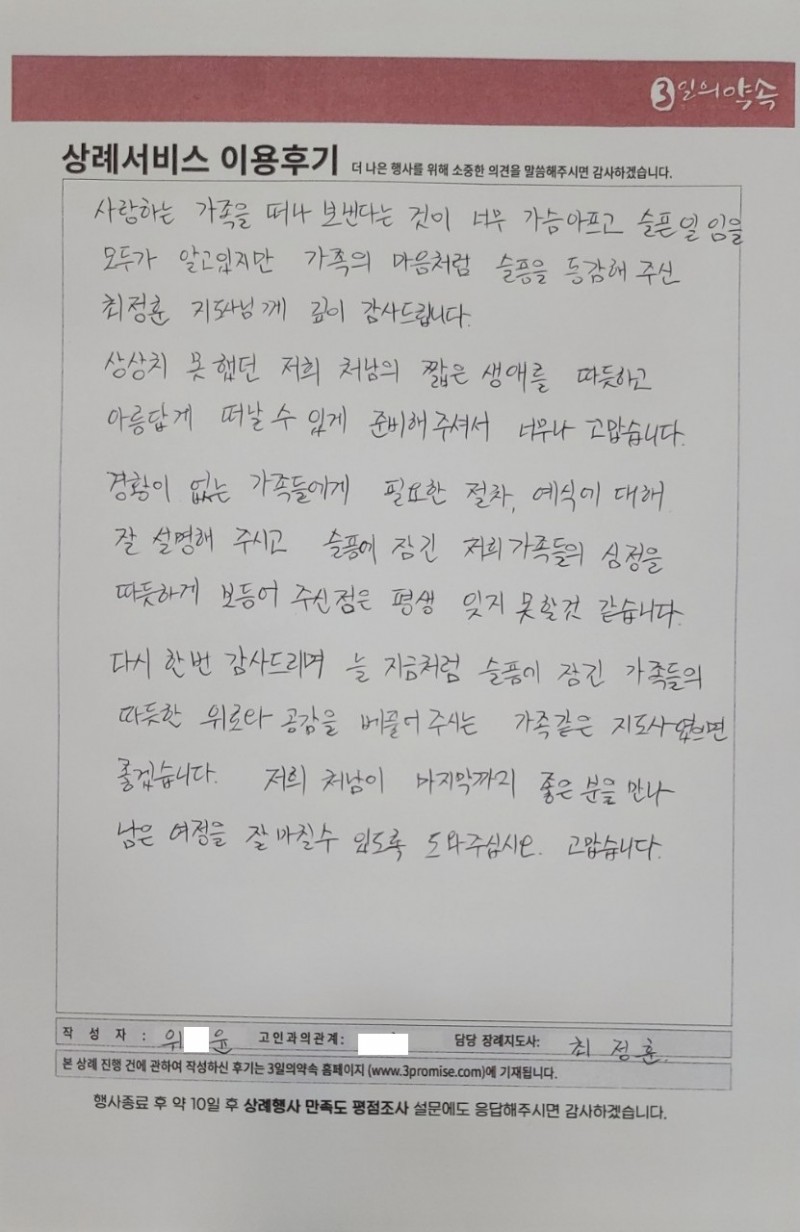 3일의약속
상례서비스 이용후기 더 나은 행사를 위해 소중한 의견을 말씀해주시면 감사하겠습니다.
사랑하는 가족을 떠나 보낸다는 것이 너무 가슴아프고 슬픈일 임을
모두가 알고있지만 가족의 마음처럼 슬픔을 동감해 주신
최정훈 지도사님께 깊이 감사드립니다.
상상치 못했던 저희 처남의 짧은 생애를 따듯하고
아름답게 떠날 수 있게 준비해주셔서 너무나 고맙습니다.
경황이 없는 가족들에게 필요한 절차, 예식에 대해
잘 설명해 주시고 슬픔에 잠긴 저희가족들의 심정을
따듯하게 보듬어 주신점은 평생 잊지 못할것 같습니다.
다시 한번 감사드리며 늘 지금처럼 슬픔에 잠긴 가족들의
따듯한 위로와 공감을 베풀어 주시는 가족같은 지도사였으면
좋겠습니다. 저희 처남이 마지막까지 좋은 분을 만나
남은 여정을 잘 마칠수 있도록 도와주십시오. 고맙습니다.
작 성 자 : 위 윤 고인과의관계: 담당 장례지도사: 최 정 훈.
본 상례 진행 건에 관하여 작성하신 후기는 3일의약속 홈페이지 (www.3promise.com)에 기재됩니다.
행사종료 후 약 10일 후 상례행사 만족도 평점조사 설문에도 응답해주시면 감사하겠습니다.